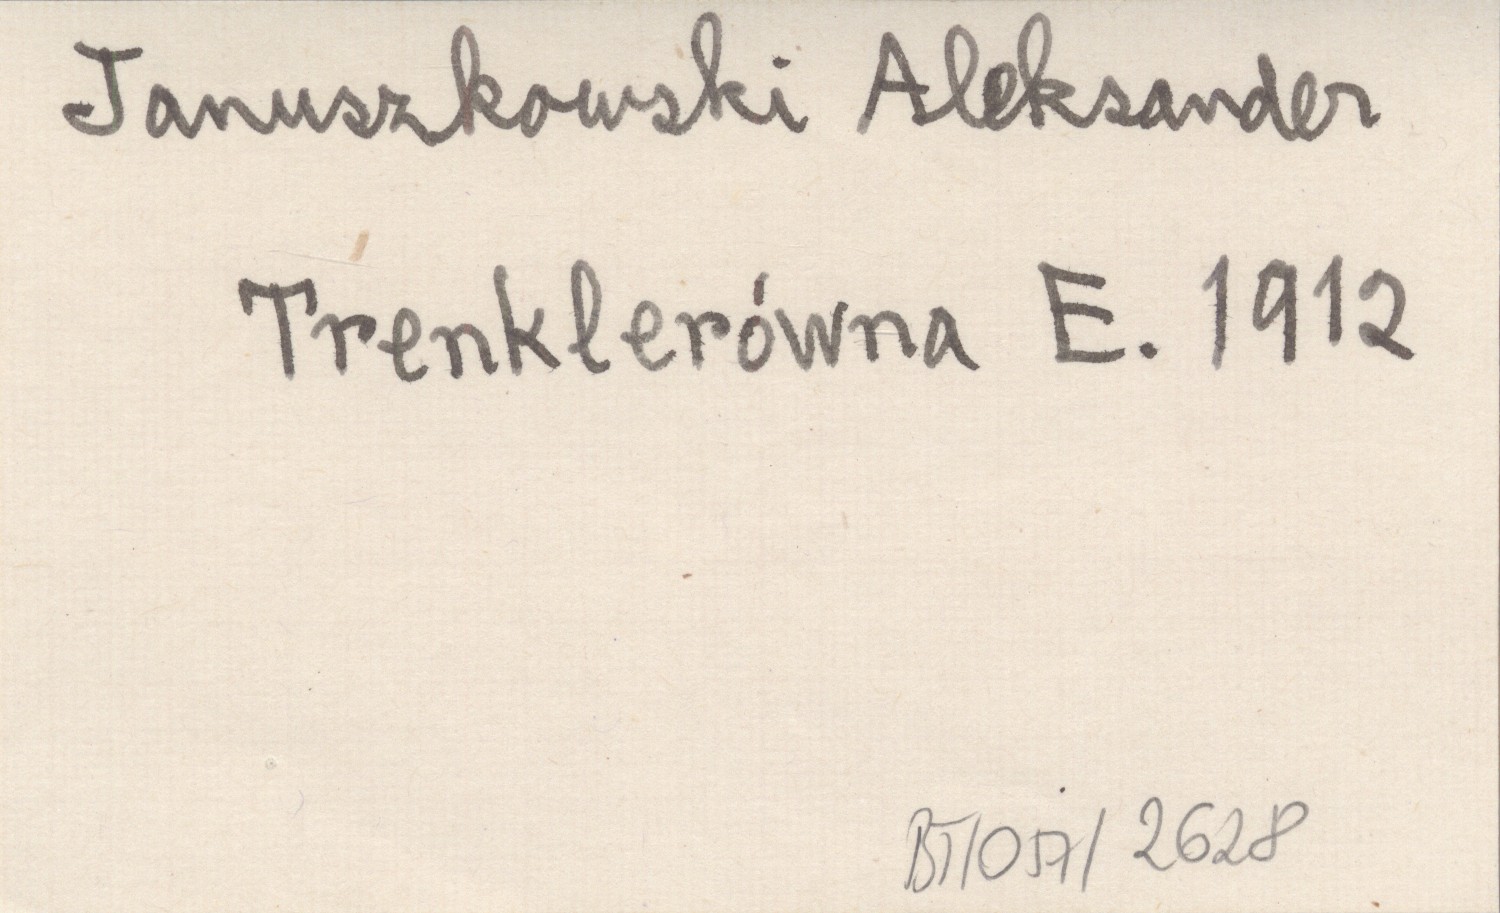 Januszkowski Aleksander
Trenklerówna E. 1912
BT/057/2628